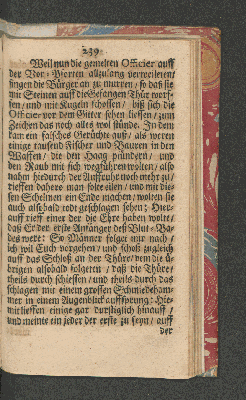 239
Weil nun die gemelten Officier auff
der Vor-Pforten allzulang verweileten/
fingen die Bürger an zu murren / so daß sie
mit Steinen auff die Gefangen Thür worf-
fen / und mit Kugeln schossen / biß sich die
Officier vor dem Gitter sehen liessen / zum
Zeichen das noch alles wol stünde. In dem
kam ein falsches Gerüchte auß / als weren
einige tausend Fischer und Bauren in den
Waffen / die den Haag plündern / und
den Raub mit sich wegführen wolten / also
nahm hiedurch der Auffruhr noch mehr zu /
rieffen dahero man solte eilen / und mit die-
sen Schelmen ein Ende machen / wolten sie
auch alsobald todt geschlagen sehen; Hier-
auff rieff einer der die Ehre haben wolte /
daß Er der erste Anfänger deß Blut-Ba-
des were: So Männer folge mir nach /
ich wil Euch vorgehen / und schoß zugleich
auff das Schloß an der Thüre / dem die ü-
brigen alsobald folgeten / daß die Thüre /
theils durch schiessen / und theils durch das
schlagen mit einem grossen Schmiedeham-
mer in einem Augenblick auffsprung: Hie-
mit lieffen einige gar durstiglich hinauff /
und meinte ein jeder der erste zu seyn / auff
der